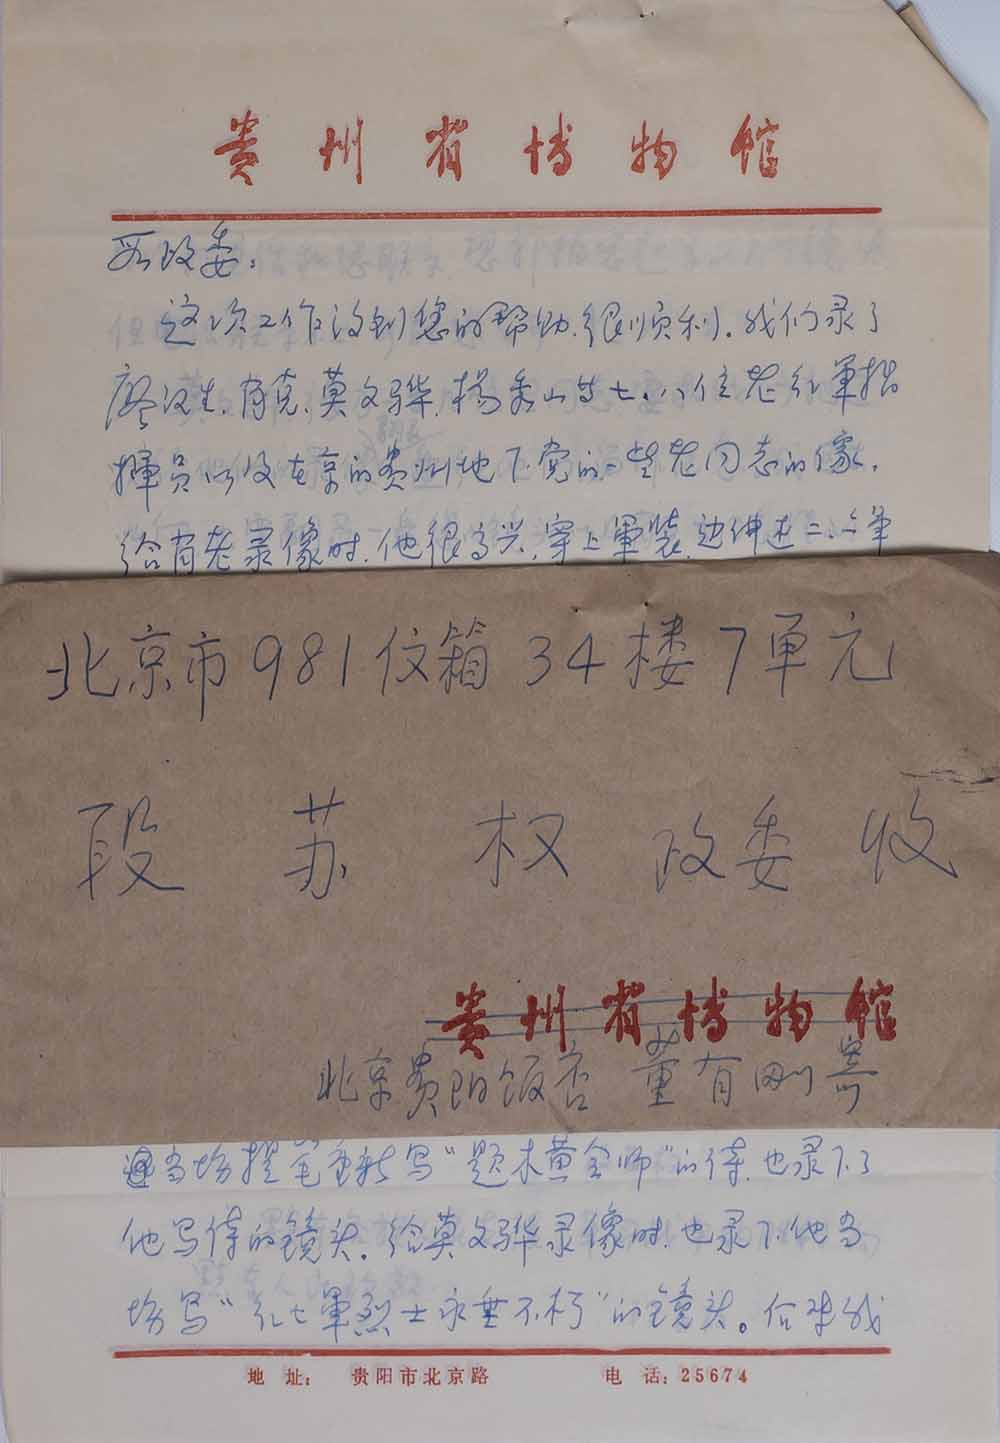 贵州省博物馆
段政委:
这次工作得到您的帮助,很顺利。我们录了
廖汉生、肖克、莫文骅、杨秀山等七、八位老红軍指
揮员以及在京的贵州地下党的一些老同志的像。
给肖老录像时,他很高兴,穿上軍装,边讲述二、六軍
北京市981信箱34楼7单元
段苏权政委收
贵州省博物馆
北京贵阳饭店 董有刚寄
当场提笔重新写“题木黄会师”的诗,也录下了
他写诗的镜头。给莫文骅录像时,也录下他当
场写“红七軍烈士永垂不朽”的镜头。后来我
地 址: 贵阳市北京路 电 话: 25674